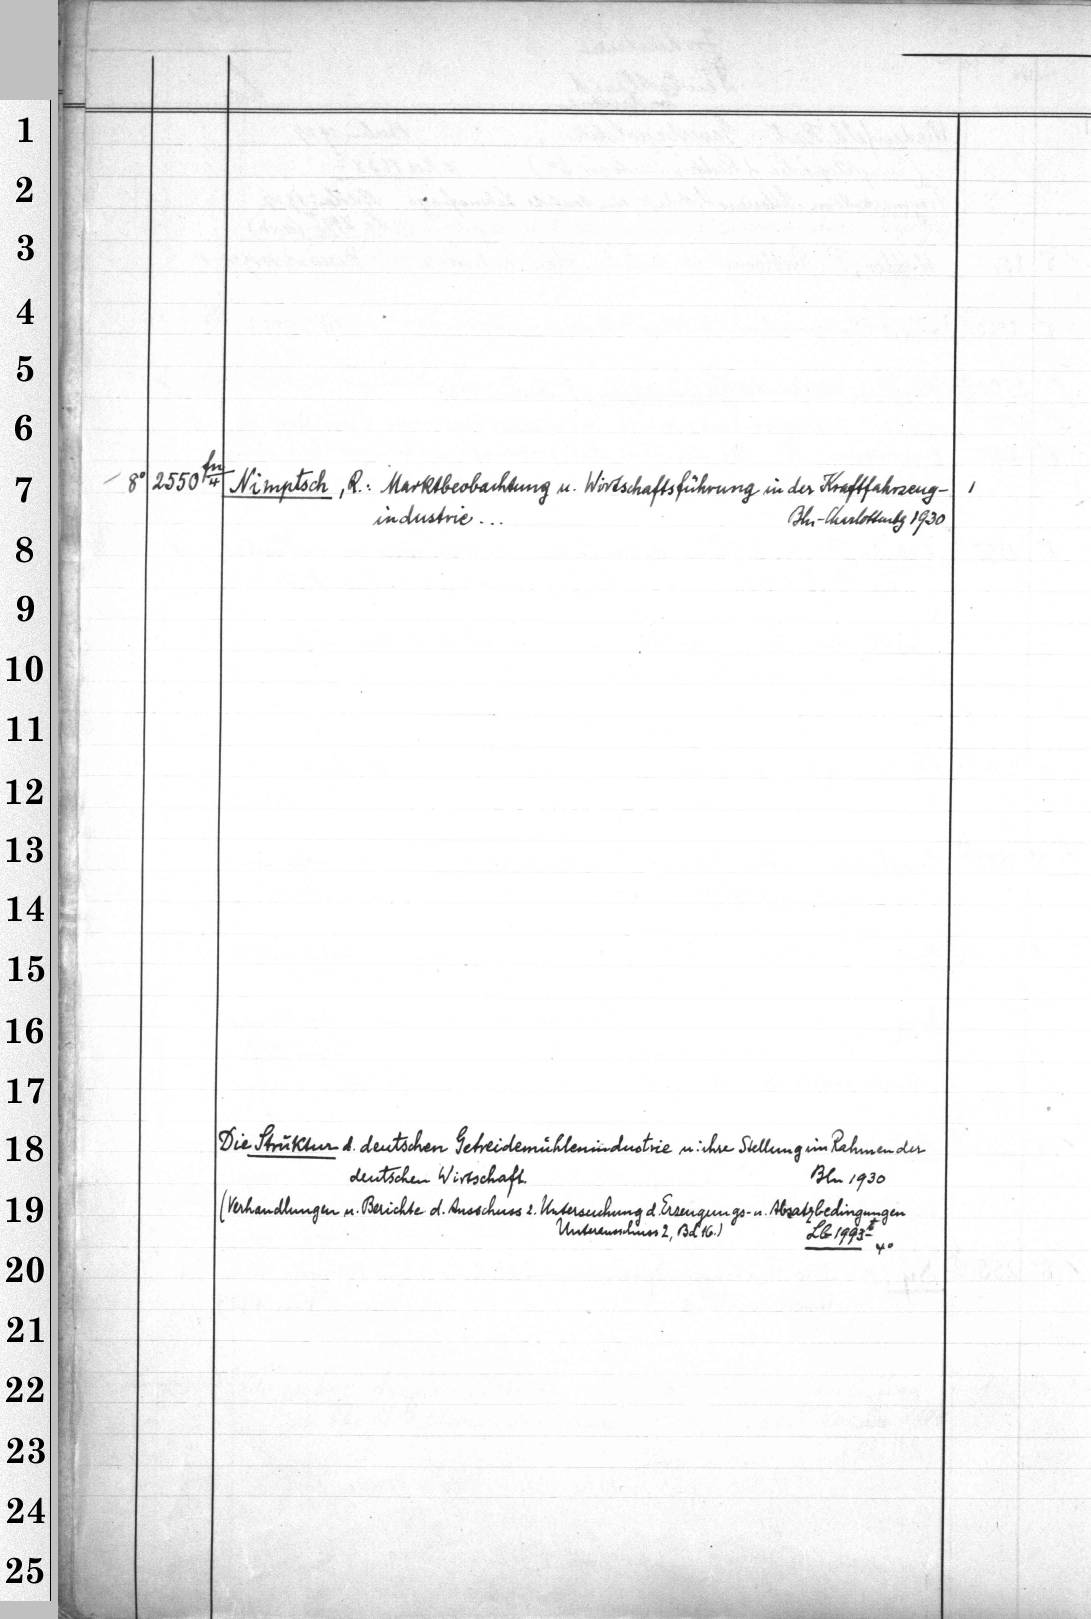 1
2
3
4
5
6
7
8° 2550 fn/4 Nimptsch, R.: Marktbeobachtung u. Wirtschaftsführung in der Kraftfahrzeug- 1
industrie... Bln-Charlottenbg 1930
8
9
10
11
12
13
14
15
16
17
18
Die Struktur d. deutschen Getreidemühlenindustrie u. ihre Stellung im Rahmen der
deutschen Wirtschaft. Bln 1930
19
(Verhandlungen u. Berichte d. Ausschuss z. Untersuchung d. Erzeugungs- u. Absatzbedingungen
Unterausschuss 2, Bd 16.) LG 1993 t
4°
20
21
22
23
24
25